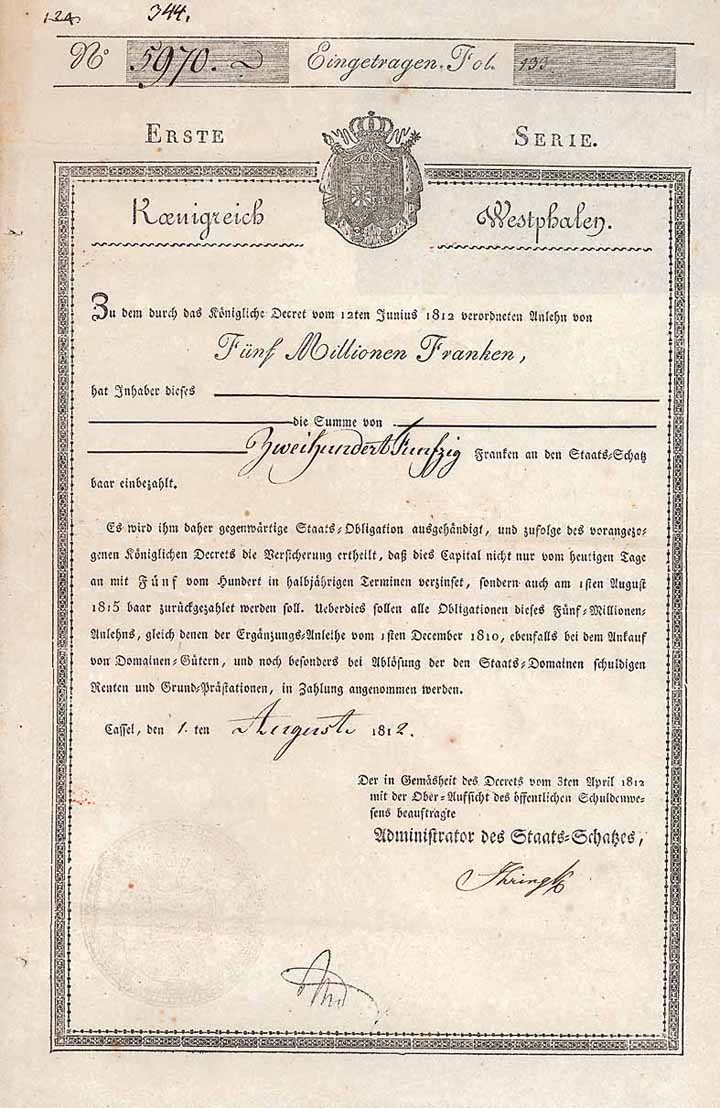 344.
No 5970. Eingetragen. Fol. 133
ERSTE SERIE.
Kœnigreich Westphalen.
Zu dem durch das Königliche Decret vom 12ten Junius 1812 verordneten Anlehn von
Fünf Millionen Franken,
hat Inhaber dieses
die Summe von
Zweihundert Funfzig Franken an den Staats-Schatz
baar einbezahlt.
Es wird ihm daher gegenwärtige Staats-Obligation ausgehändigt, und zufolge des vorangezo-
genen Königlichen Decrets die Versicherung ertheilt, daß dies Capital nicht nur vom heutigen Tage
an mit Fünf vom Hundert in halbjährigen Terminen verzinset, sondern auch am 1sten August
1815 baar zurückgezahlet werden soll. Ueberdies sollen alle Obligationen dieses Fünf-Millionen-
Anlehns, gleich denen der Ergänzungs-Anleihe vom 1sten December 1810, ebenfalls bei dem Ankauf
von Domainen-Gütern, und noch besonders bei Ablösung der den Staats-Domainen schuldigen
Renten und Grund-Prästationen, in Zahlung angenommen werden.
Cassel, den 1. ten August 1812.
Der in Gemäsheit des Decrets vom 3ten April 1812
mit der Ober-Aufsicht des öffentlichen Schuldenwe-
sens beauftragte
Administrator des Staats-Schatzes,